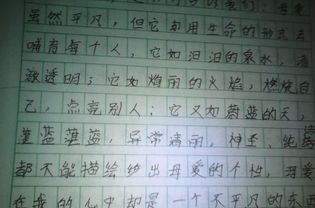 虽然平凡，但它却用生命的形式去
哺育每个人，它如汩汩的泉水，清
澈透明；它如炽热的火焰，燃烧自
己，点亮别人；它又如蔚蓝的天，
蓝蓝，异常清丽，神圣、纯
都不能描绘出母爱的个性，母爱
在我的心中却是一个不平凡的东西